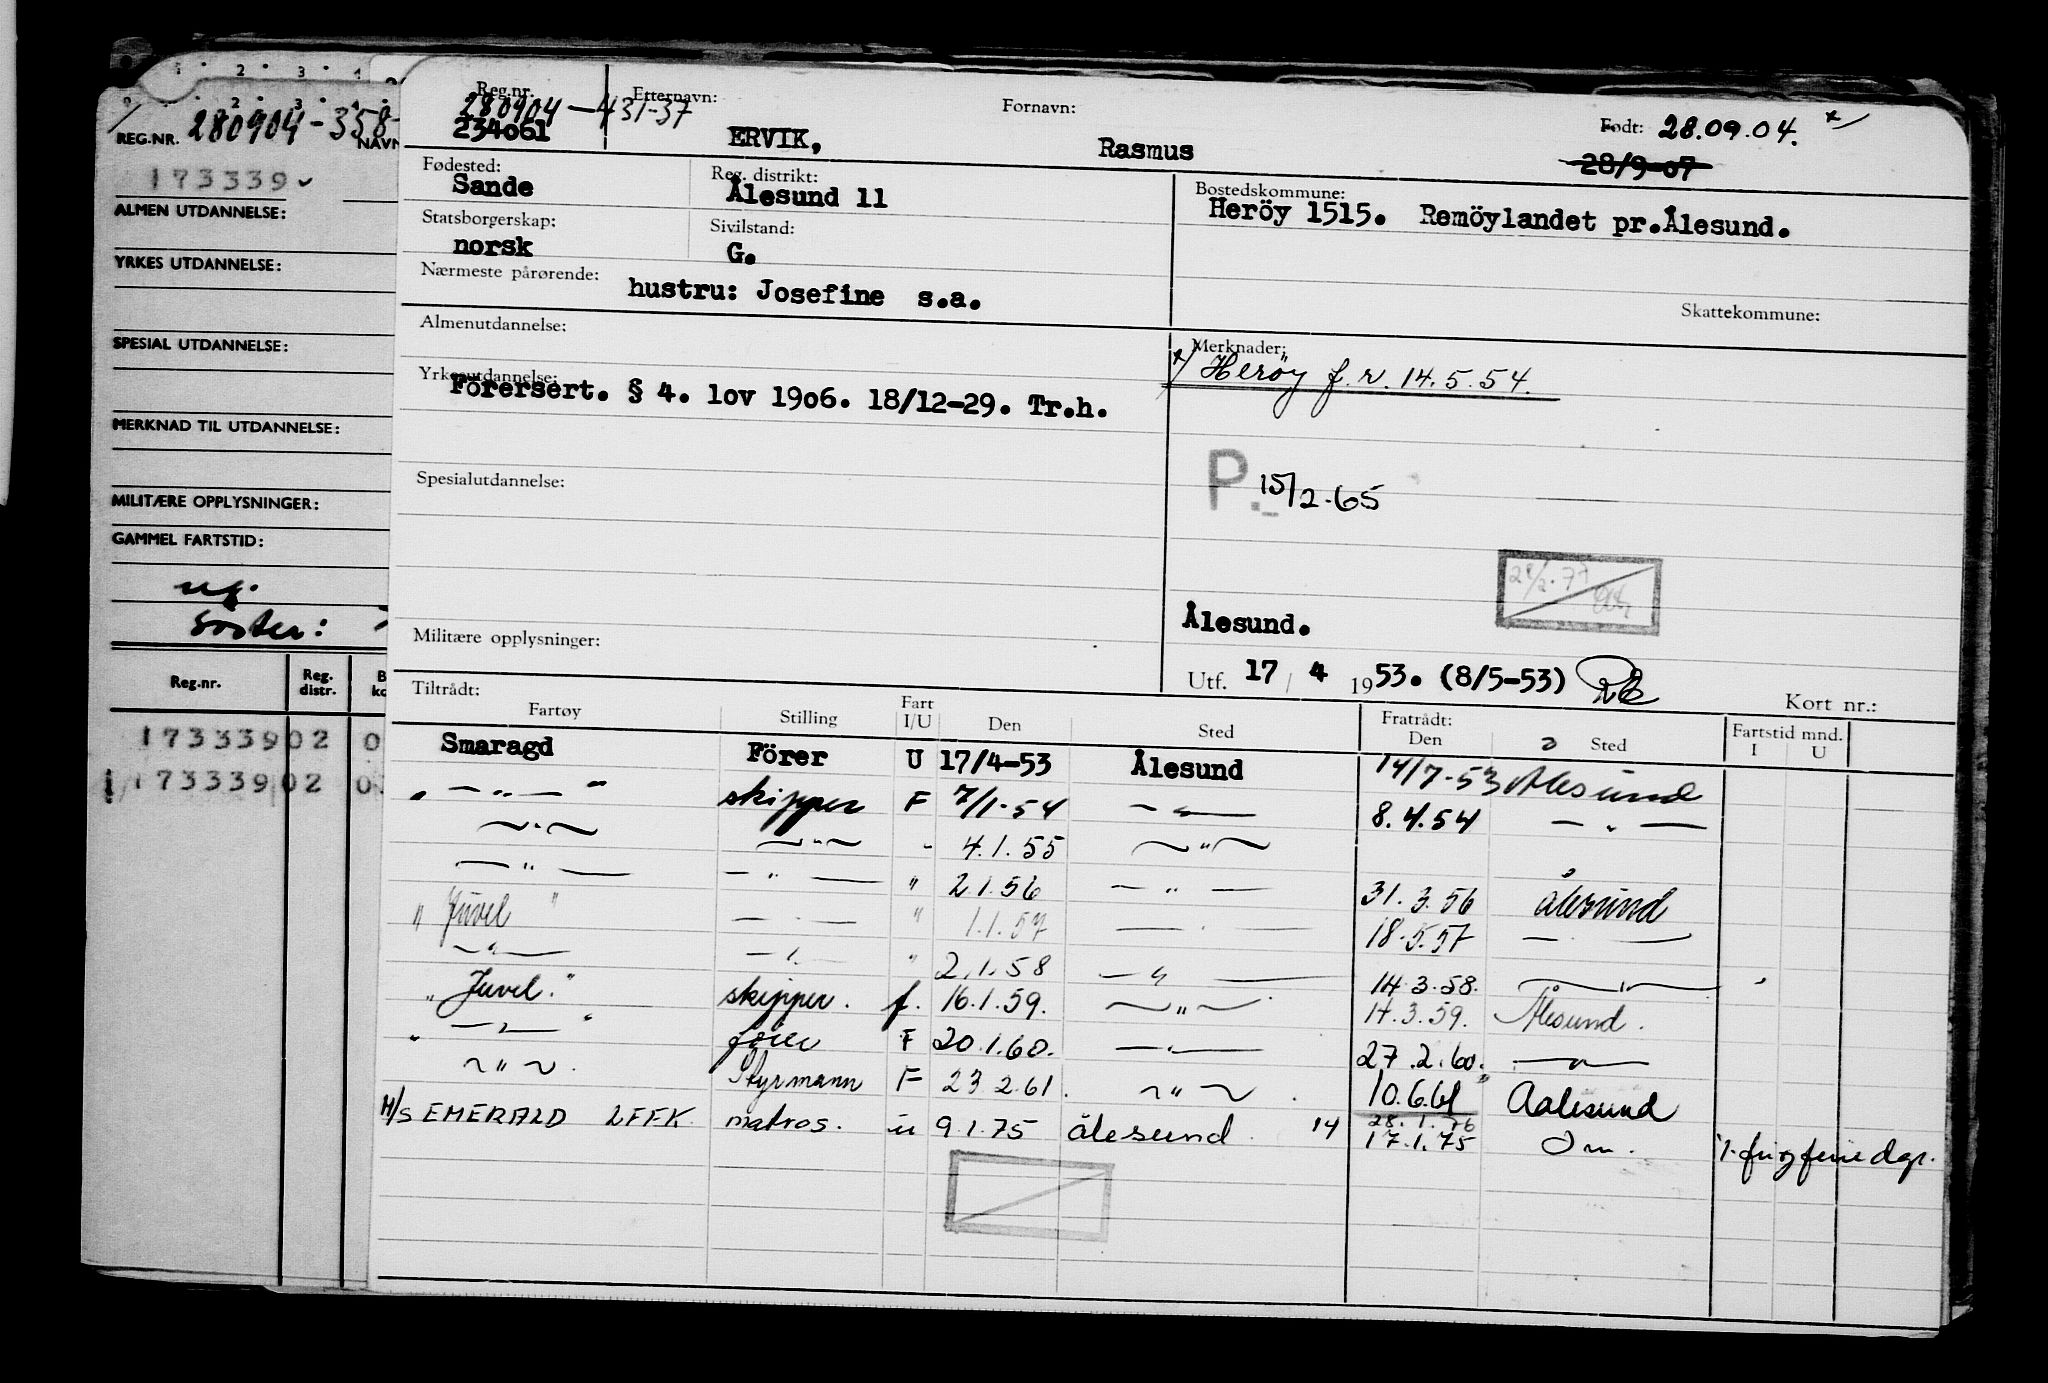 REG.NR. 280904-358- NAVN
173339
ALMEN UTDANNELSE:
YRKES UTDANNELSE:
SPESIAL UTDANNELSE:
MERKNAD TIL UTDANNELSE:
MILITÆRE OPPLYSNINGER:
GAMMEL FARTSTID:
ug.
søster:
Reg.nr. Reg. distr.
173339 02 0
173339 02 0
Reg.nr. Etternavn: Fornavn: Født: 28.09.04. x/
280904-431-37
234061 ERVIK, Rasmus 28/9-07
Fødested: Reg. distrikt: Bostedskommune:
Sande Ålesund 11 Heröy 1515. Remöylandet pr.Ålesund.
Statsborgerskap: Sivilstand:
norsk G.
Nærmeste pårørende: hustru: Josefine s.a.
Skattekommune:
Almenutdannelse: Merknader:
x/ Herøy f.r. 14.5.54.
Yrkesutdannelse:
Förersert. § 4. lov 1906. 18/12-29. Tr.h.
Spesialutdannelse: P. 15/2-65
Ålesund.
Militære opplysninger:
Utf. 17 / 4 1953. (8/5-53)
Kort nr.:
Tiltrådt: Fratrådt:
Fartøy Stilling Fart I/U Den Sted Den Sted Fartstid mnd. I U
Smaragd Förer U 17/4-53 Ålesund 14/7-53 Ålesund
" — " — " skipper F 7/1-54 — " — 8.4.54 — " —
— " — — " — " 4.1.55 — " —
— " — — " — " 2.1.56 — " — 31.3.56 Ålesund
" Juvel " — " — " 1.1.57 — " — 18.5.57 — " —
— " — — " — " 2.1.58 — " — 14.3.58. — " —
" Juvel." skipper. f. 16.1.59. — " — 14.3.59. Ålesund.
" — " — " fører F 20.1.60. — " — 27.2.60. — " —
— " — Styrmann F 23.2.61. — " — 10.6.61 Aalesund
28.1.76
M/S EMERALD LFFK matros. u 9.1.75 ålesund. 14 17.1.75 Dm.